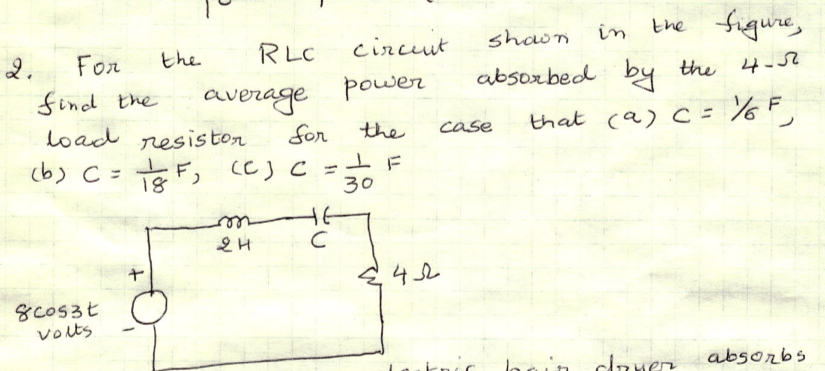 2. For the RLC circuit shown in the figure,
find the average power absorbed by the 4-Ω
load resistor for the case that (a) C = 1/6 F,
(b) C = 1/18 F, (c) C = 1/30 F
2H
C
+
4 Ω
8cos3t
volts
-
hair dryer absorbs